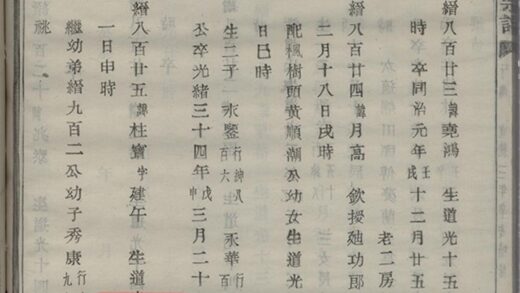 縉八百廿三諱堯鴻 生道光十五
時卒同治元年壬戌十二月廿五
老二房
縉八百廿四諱月高 欽授迪功郎
三月十八日戌時
配楓樹頭黃順潮公幼女生道光
日巳時
生二子 永鑒行紳八百六 永華行百
公卒光緒三十四年戊申三月二十
縉八百廿五諱桂寶字建午 生道
一日申時
繼幼弟縉九百二公幼子秀康行九